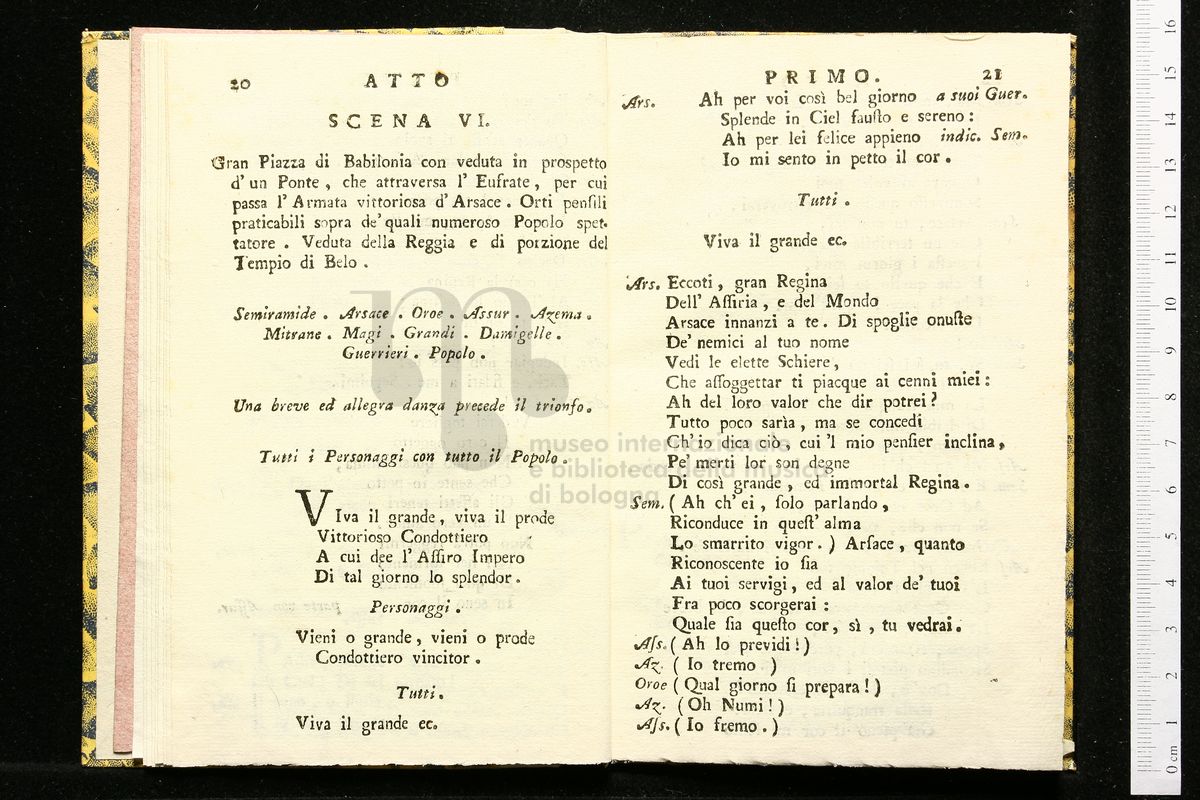 20 ATTO
SCENA VI.
Gran Piazza di Babilonia con veduta in prospetto
d' un Ponte, che attraversa l' Eufrate, per cui
passa l' Armata vittoriosa d' Arsace. Orti penſili
praticabili sopra de' quali numeroso Popolo spet-
tatore. Veduta della Reggia e di porzione del
Tempio di Belo.
Semiramide. Arsace. Oroe. Assur. Azema.
Mitrane. Magi. Grandi. Damigelle.
Guerrieri. Popolo.
Una breve ed allegra danza precede il trionfo.
Tutti i Personaggi con tutto il Popolo.
VIva il grande, viva il prode
Vittorioso Condottiero
A cui dee l' Aſſiro Impero
Di tal giorno lo splendor.
Personaggi.
Vieni o grande, vieni o prode
Condottiero vincitor.
Tutti.
Viva il grande ec.
PRIMO. 21
Ars. Ah per voi così bel giorno a suoi Guer.
Splende in Ciel fauſto e sereno:
Ah per lei felice appieno indic. Sem.
Io mi sento in petto il cor.
Tutti.
Viva il grande ec.
Ars. Eccoti, gran Regina
Dell' Aſſiria, e del Mondo
Arsace innanzi a te. Di spoglie onuſte
De' nemici al tuo nome
Vedi le elette Schiere,
Che aſſoggettar ti piacque ai cenni miei:
Ah del loro valor che dir potrei?
Tutto poco sarìa, ma se concedi
Ch'io dica ciò, cui 'l mio penſier inclina,
Pe' merti lor son degne
Di così grande, ed immortal Regina.
Sem. (Ah ch' ei, ſolo parlando,
Riconduce in queſt' alma
Lo smarrito vigor.) Arſace, quanto
Riconoscente io ſia
Ai tuoi servigi, ed al valor de' tuoi
Fra poco scorgerai:
Quale ſia queſto cor, sì, tu vedrai.
Aſs. (Ah lo previdi!)
Az. (Io tremo)
Oroe (Qual giorno ſi prepara!)
Az. (Oh Numi!)
Aſs. (Io fremo.)
museo internazionale
e biblioteca della musica
di bologna
0 cm 1 2 3 4 5 6 7 8 9 10 11 12 13 14 15 16